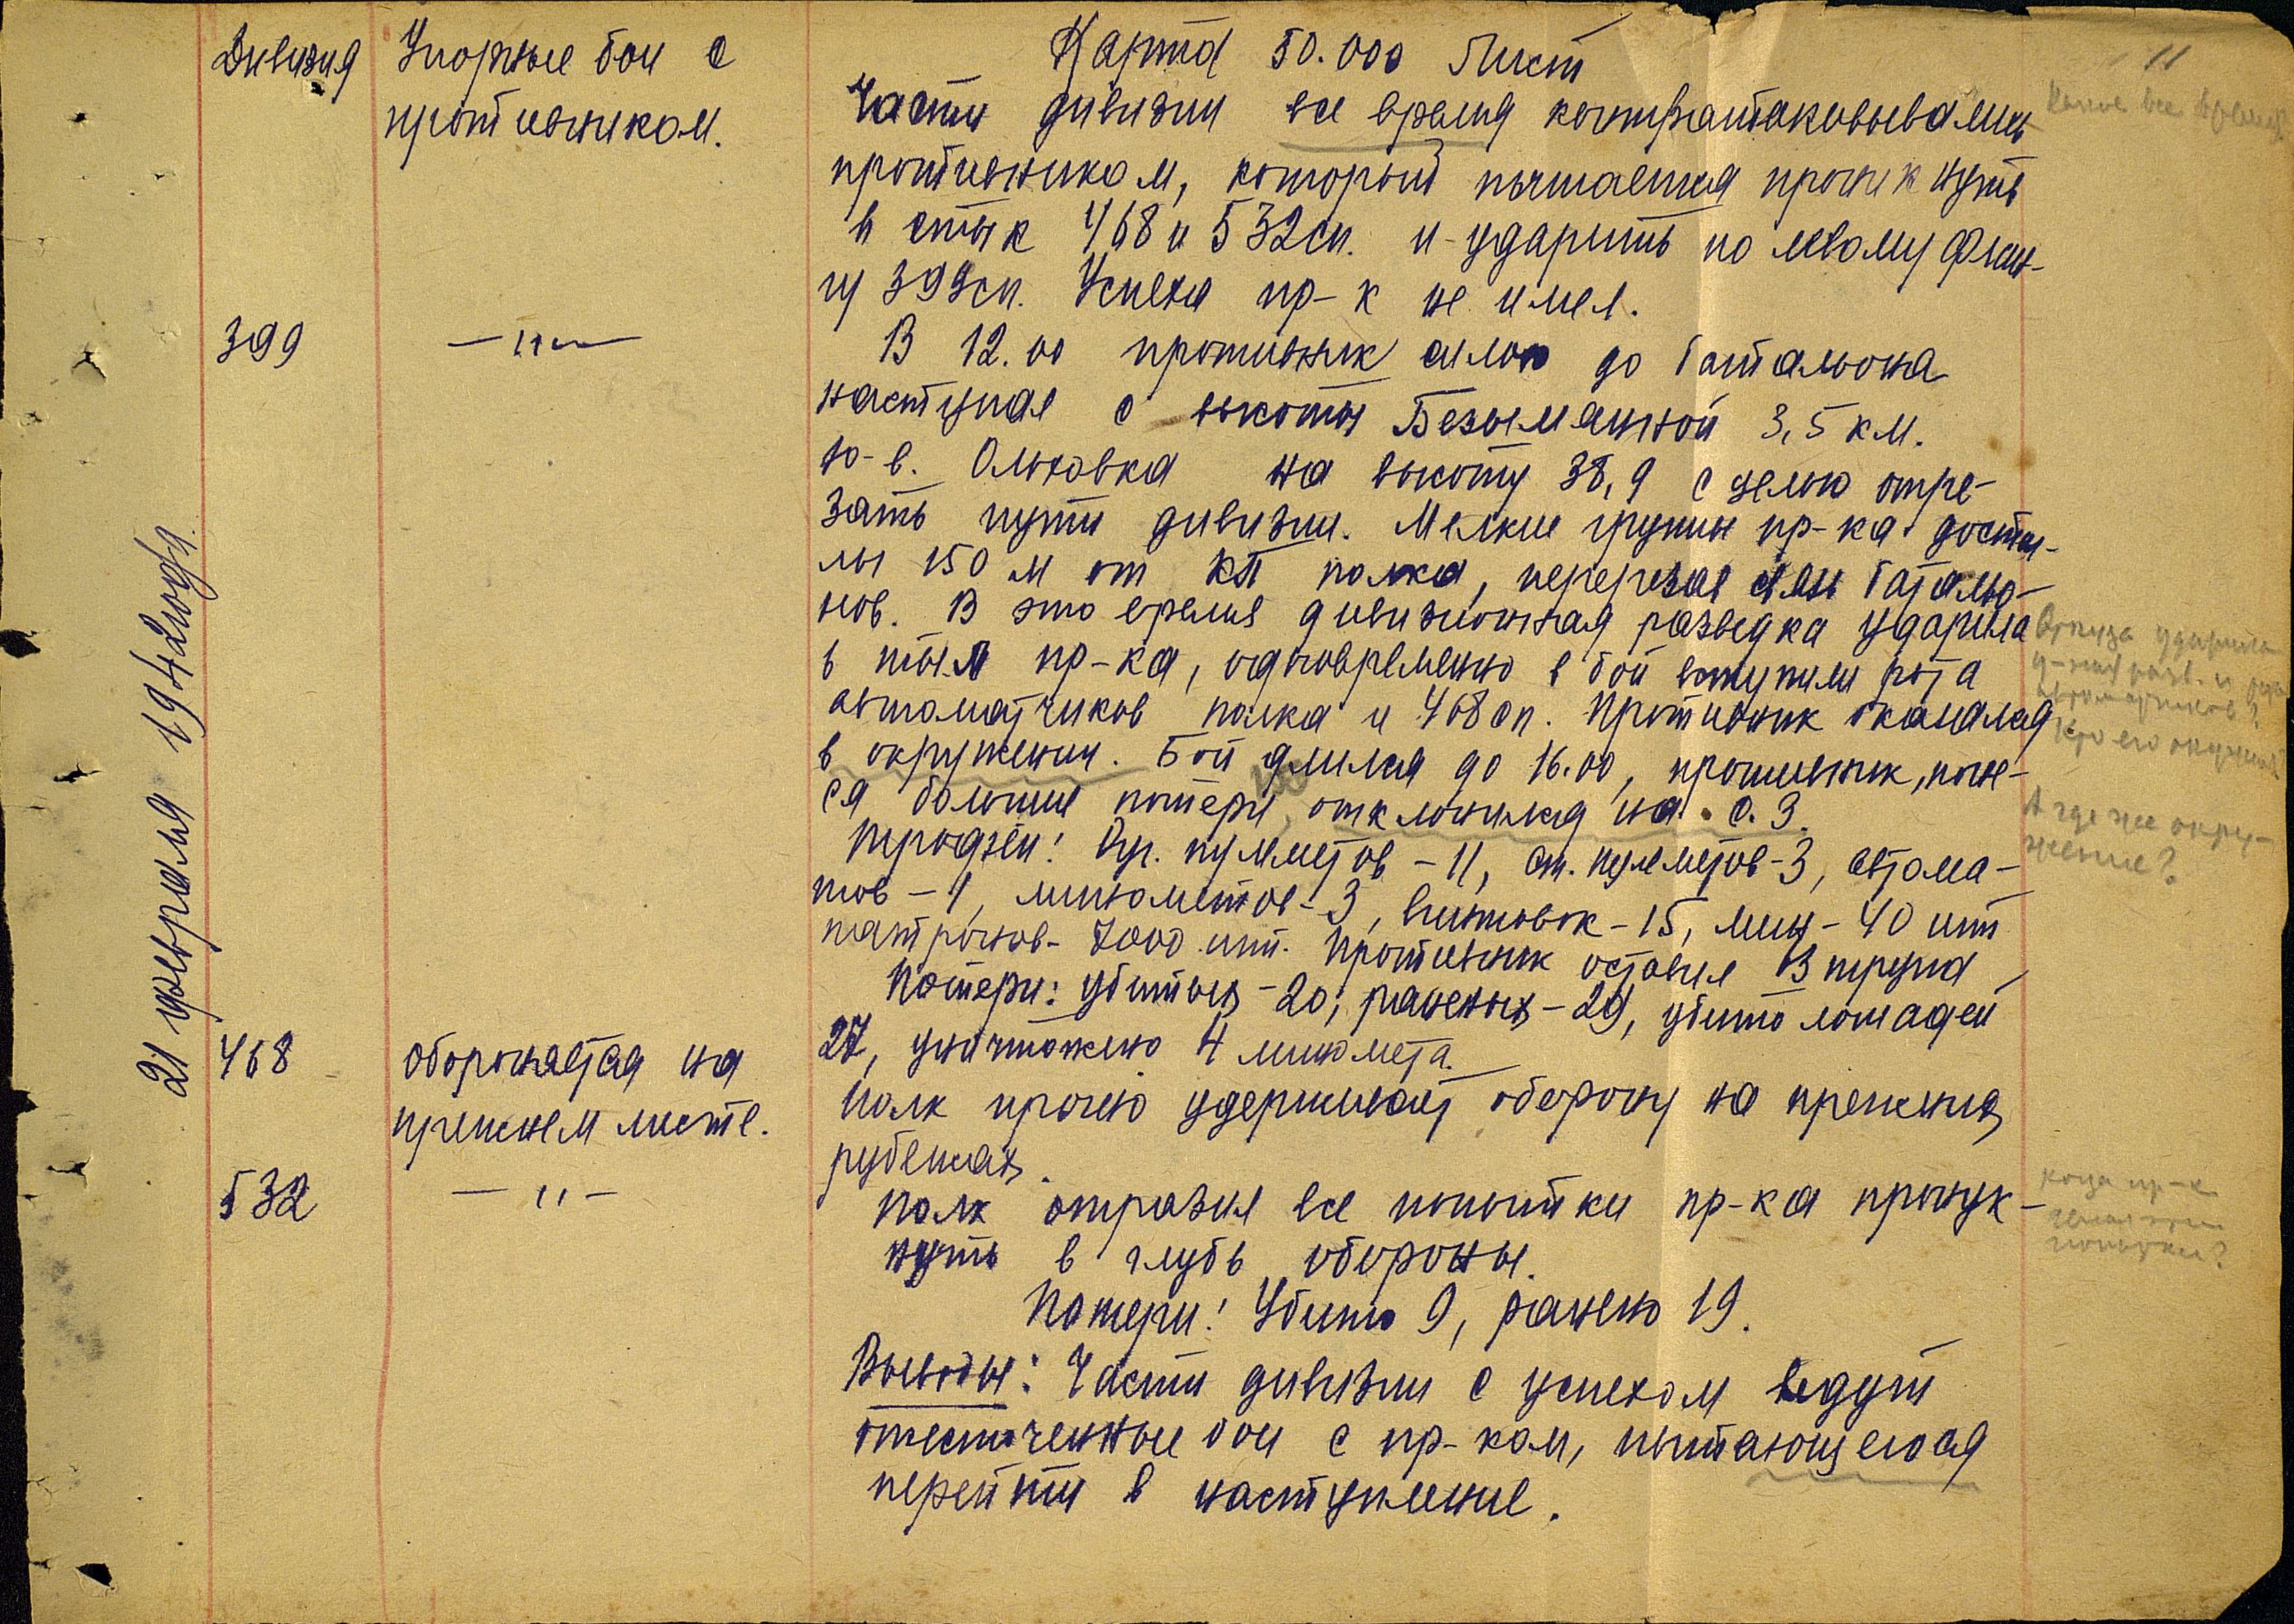 11
21 февраля 1942 года.
Дивизия
Упорные бои с
противником.
Карта 50.000 Лист
Части дивизии все время контратаковывались
противником, который пытается проникнуть
в стык 468 и 532сп. и ударить по левому флан-
гу 399сп. Успеха пр-к не имел.
399
—"—
В 12.00 противник силою до батальона
наступая с высоты Безыманной 3,5 км.
ю-в. Ольховка на высоту 38,9 с целью отре-
зать пути дивизии. Мелкие группы пр-ка достиг-
лы 150 м от КП полка, перерезав связь батальо-
нов. В это время дивизионная разведка ударила
в тыл пр-ка, одновременно в бой вступили рота
автоматчиков полка и 468сп. Противник оказался
в окружении. Бой длился до 16.00, противник, поне-
ся большие потери отклонился на С.З.
Трофеи: Руч. пулеметов - 11, ст. пулеметов - 3, автома-
тов - 1, минометов - 3, винтовок - 15, мин - 40 шт
патронов - 7000 шт. Противник оставил 13 трупа
Потери: убитых - 20, раненых - 29, убито лошадей
27, уничтожено 4 миномета.
468
обороняется на
прежнем месте.
Полк прочно удерживает оборону на прежних
рубежах.
532
—"—
Полк отразил все попытки пр-ка проник-
нуть в глубь обороны.
Потери: Убито 9, ранено 19.
Выводы: Части дивизии с успехом ведут
ожесточенные бои с пр-ком, пытающегося
перейти в наступление.
все время
Откуда ударила
д-ная разв. и рота
автоматчиков?
Кто его окружил?
А где же окру-
жение?
когда пр-к
делал эти
попытки?